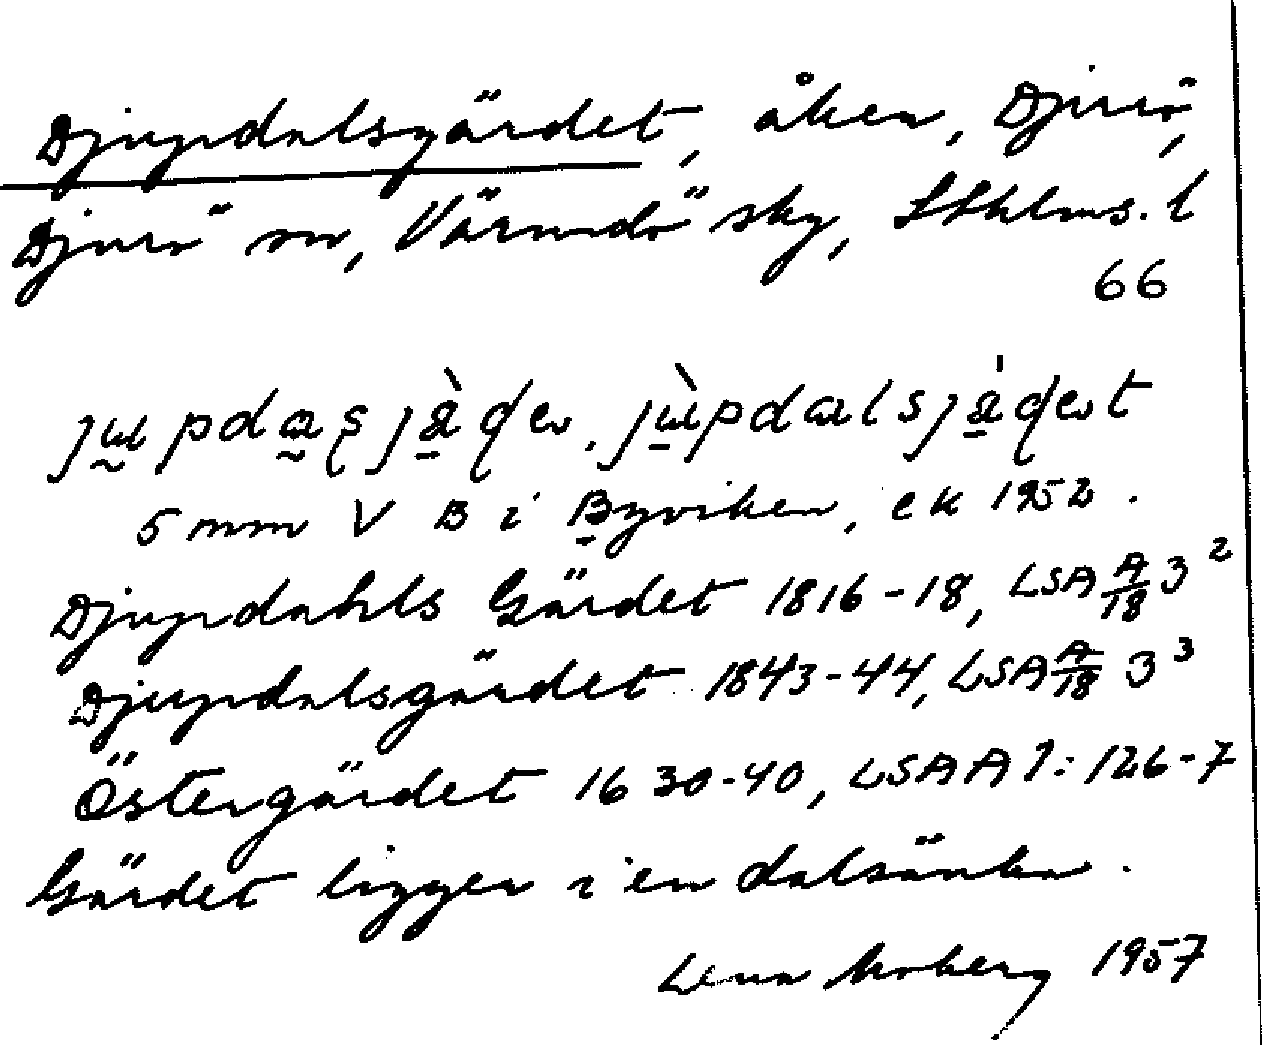 Djupdalsgärdet, åker, Djurö,
Djurö sn, Värmdö sky, Sthlms. l
66
5 mm V B i Byviken, ek 1952.
Djupdahls Gärdet 1816-18, LSA A/18 3²
Djupdalsgärdet 1843-44, LSA A/18 3³
Östergärdet 1630-40, LSA A 1: 126-7
Gärdet ligger i en dalsänka.
Lena Moberg 1957